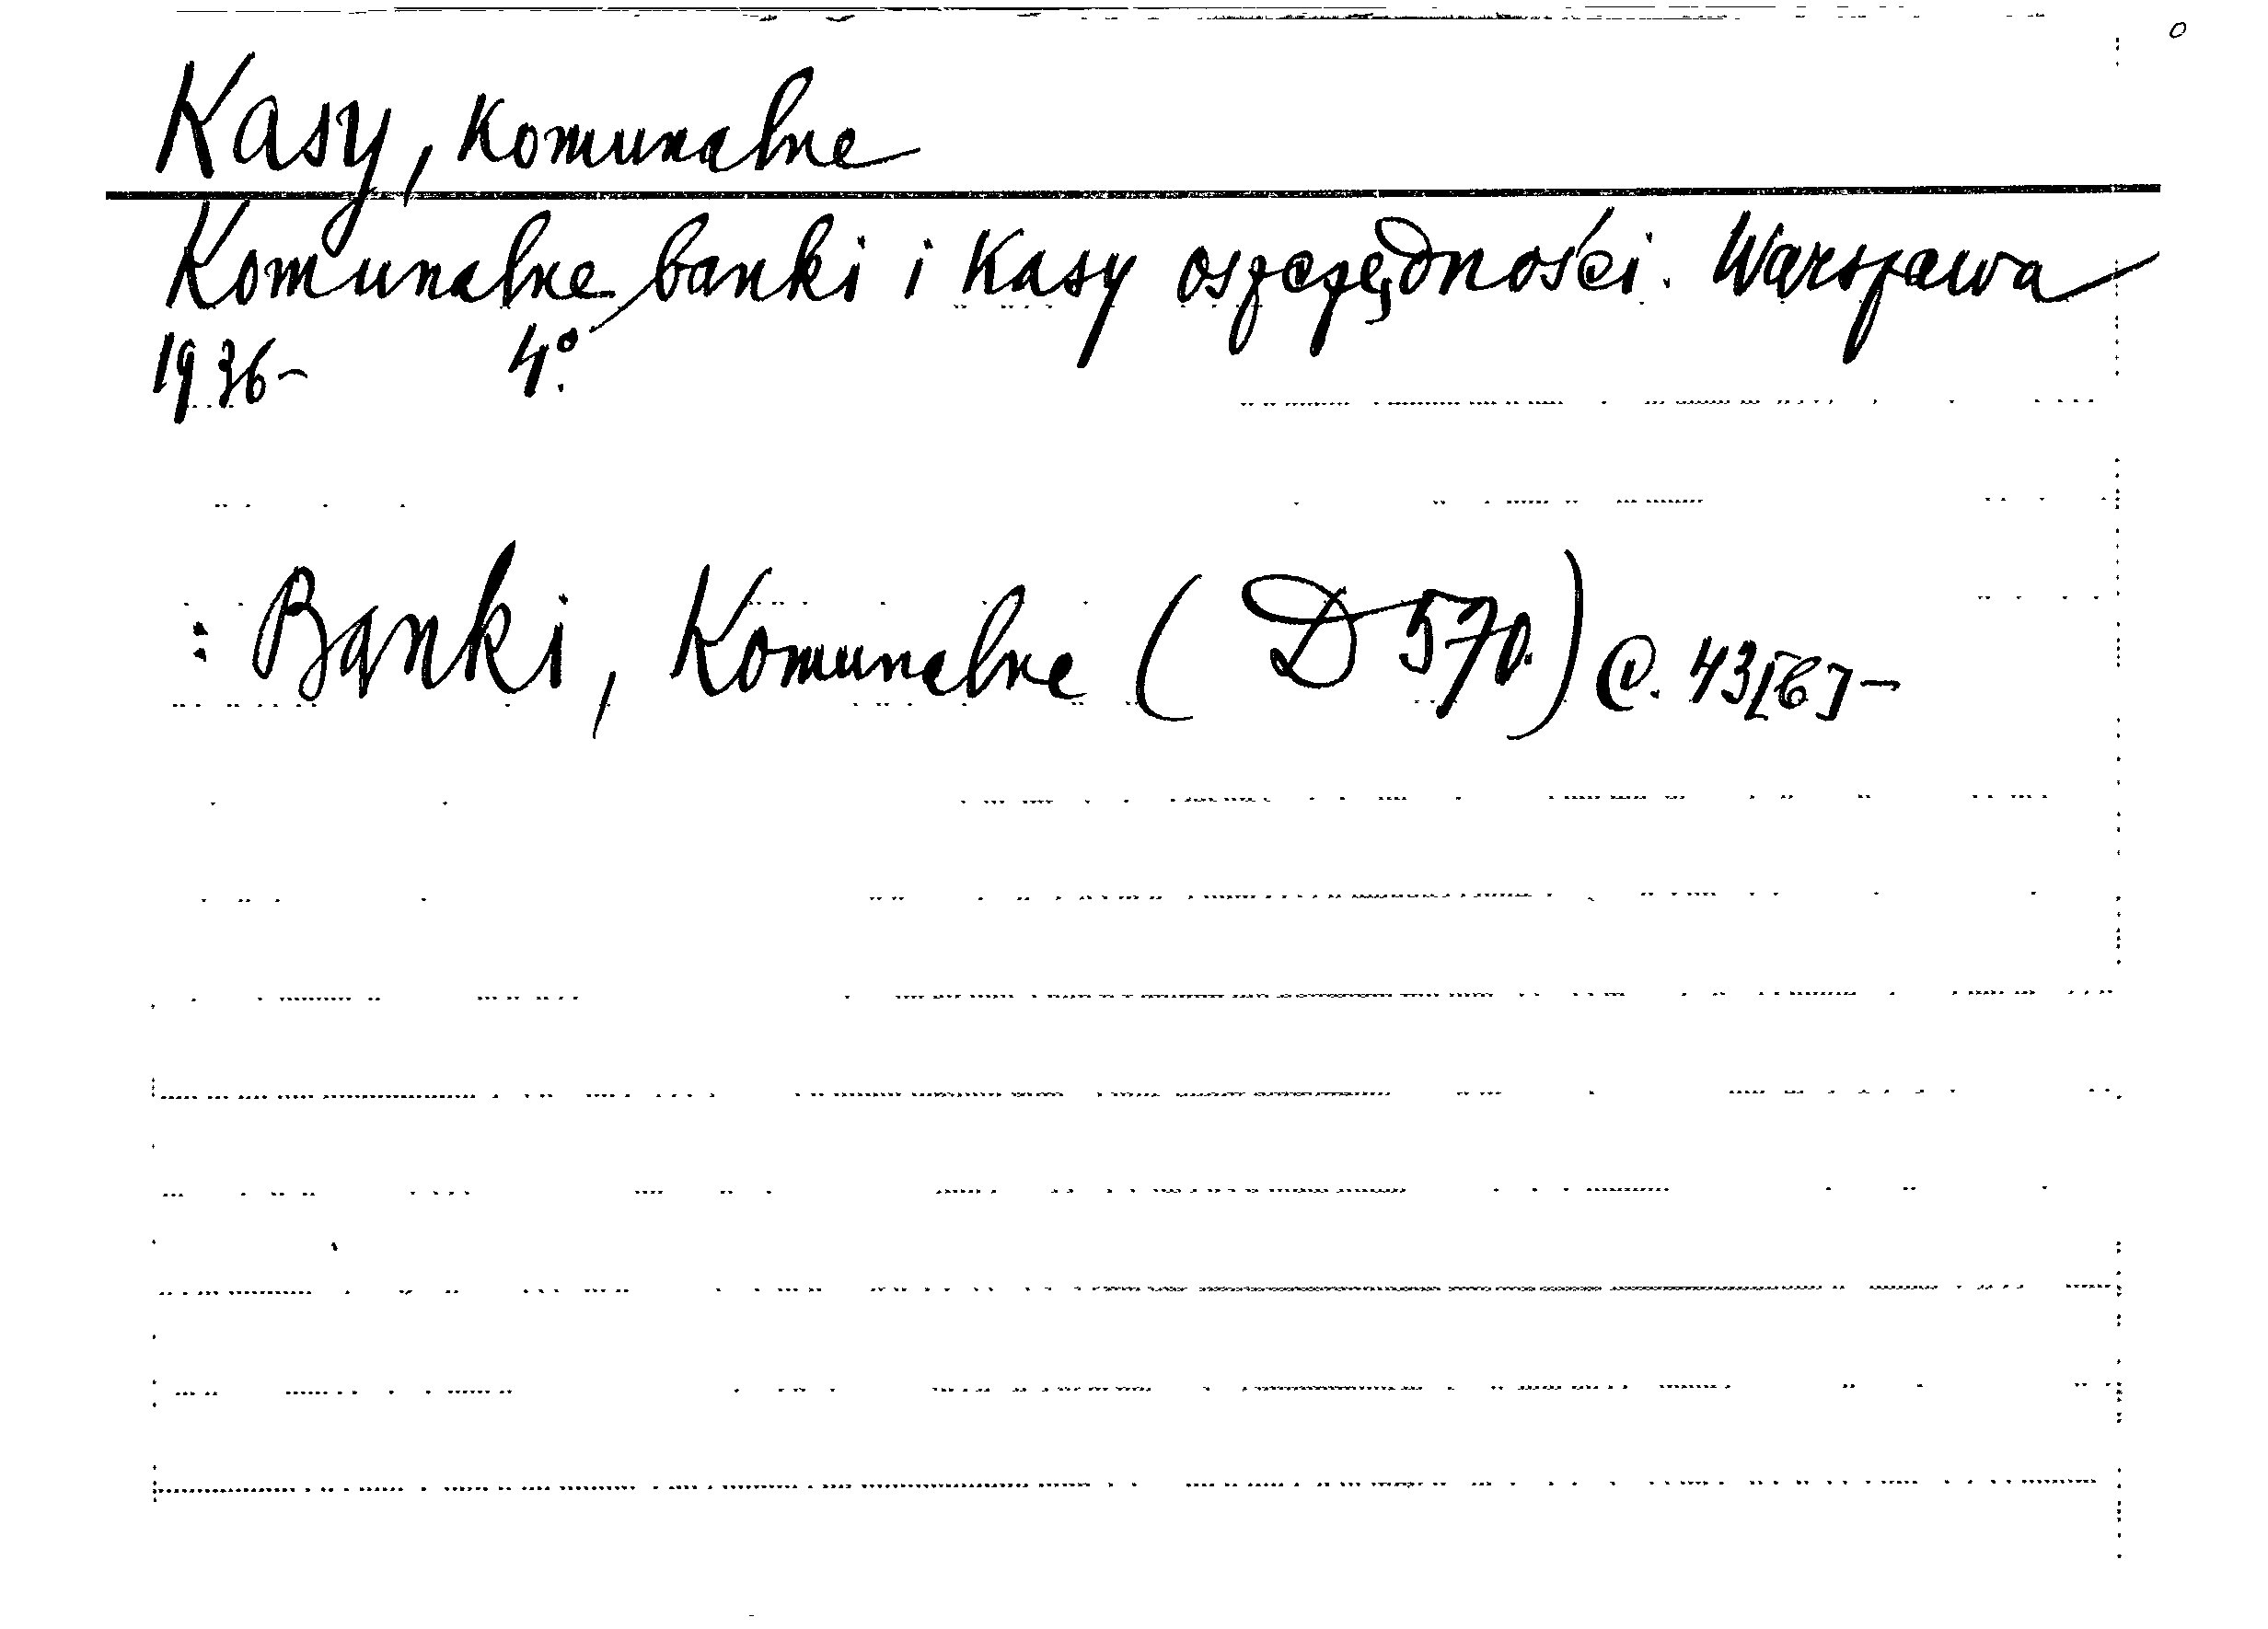 Kasy, Komunalne
Komunalne banki i Kasy oszczędności. Warszawa
1936- 4°.
: Banki, Komunalne (D 570.) C. 43[b]-